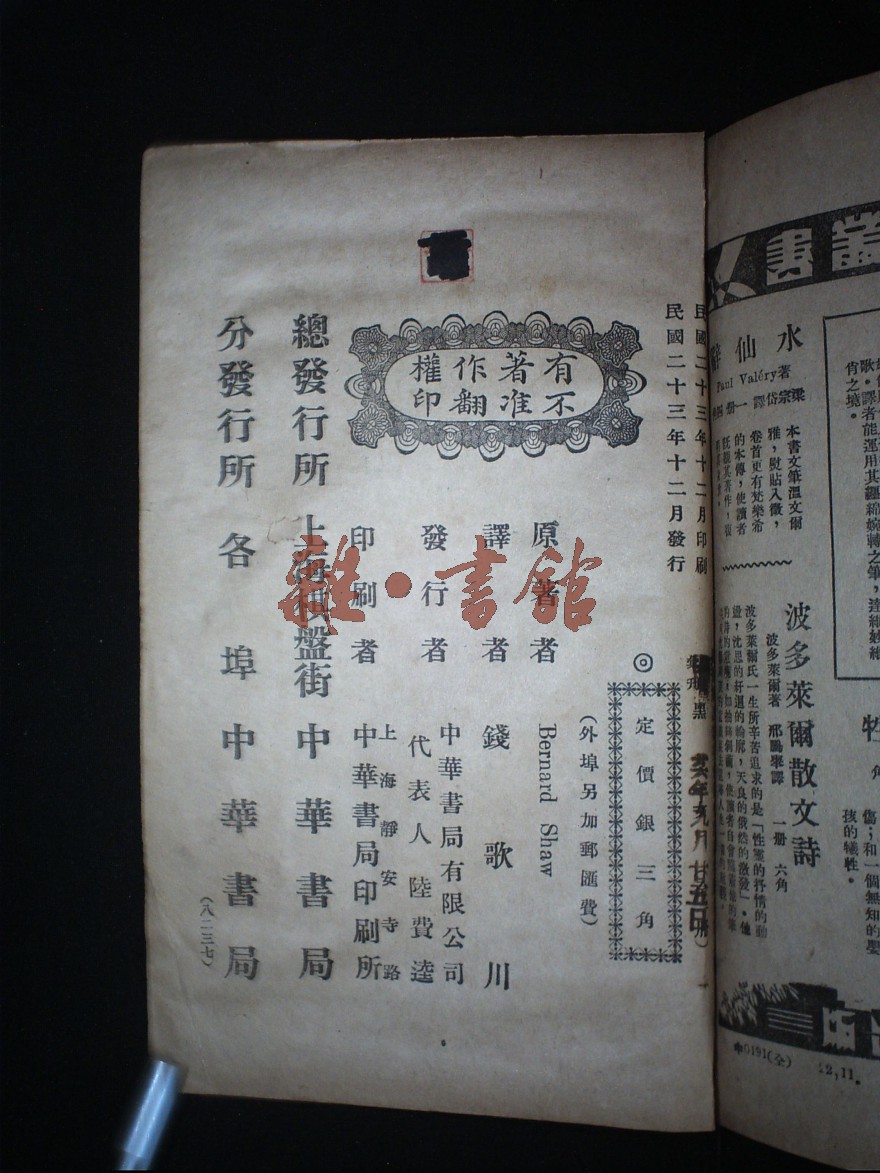 民國二十三年十二月印刷
民國二十三年十二月發行
有著作權
不准翻印
◎
定價銀三角
(外埠另加郵匯費)
原著者 Bernard Shaw
譯者 錢歌川
發行者 中華書局有限公司
代表人陸費逵
印刷者 上海靜安寺路
中華書局印刷所
總發行所 上海棋盤街 中華書局
分發行所 各埠中華書局
(八二三七)
雜·書館
叢書
水仙
Paul Valéry著
梁宗岱譯 一冊
本書文筆溫文爾
雅,熨貼入微,
卷首更有梵樂希
的本傳,使讀者
波多萊爾散文詩
波多萊爾著 邢鵬舉譯 一冊 六角
波多萊爾氏一生所辛苦追求的是「性靈的抒情的動
歌。譯者能運用其纏綿婉轉之筆,達細妙細
宵之境。
角
傷;和一個無知的嬰
孩的犧牲。
中0191(全) 22,11.